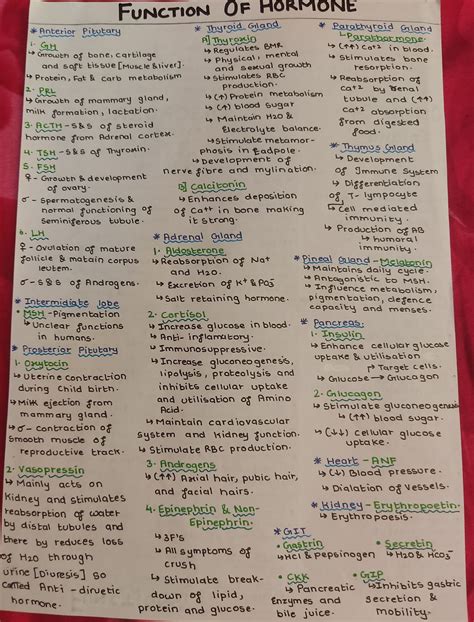 FUNCTION OF HORMONE
* Anterior Pitutary
1. GH
↳ Growth of bone, cartilage
and soft tissue [Muscle & liver].
↳ Protein, Fat & carb metabolism
2. PRL
↳ Growth of mammary gland,
milk formation, lactation.
3. ACTH - S&S of steroid
hormone from Adrenal cortex.
4. TSH - S&S of Thyroxin.
5. FSH
♀ - Growth & development
of ovary.
♂ - Spermatogenesis &
normal functioning of
Seminiferous tubule.
6. LH
♀ - Ovulation of mature
follicle & matain corpus
leutem.
♂ - S&S of Androgens.
* Intermidiate lobe
• MSH - Pigmentation
↳ Unclear functions
in humans.
* Prosterior Pitutary
1. Oxytocin
↳ Uterine contraction
during Child birth.
↳ Milk ejection from
mammary gland.
↳ ♂ - Contraction of
Smooth muscle of
reproductive track.
2. Vasopressin
↳ Mainly acts on
Kidney and stimulates
reabsorption of water
by distal tubules and
there by reduces loss
of H2O through
urine [Diuresis] So
called Anti - diruetic
hormone.
* Thyroid Gland
A] Thyroxin
↳ Regulates BMR
↳ Physical, mental
and sexual growth
↳ Stimulates RBC
production.
↳ (↑) Protein metabolism
↳ (↑) blood sugar
↳ Maintain H2O &
Electrolyte balance.
↳ Stimulate metamor-
phosis in tadpole.
↳ Development of
nerve fibre and mylination.
B] Calcitonin
↳ Enhances deposition
of Ca++ in bone making
it strong.
* Adrenal Gland
1. Aldosterone
↳ Reabsorption of Na+
and H2O.
↳ Excretion of K+ & PO4^3-
↳ Salt retaining hormone.
2. Cortisol
↳ Increase glucose in blood.
↳ Anti - inflamatory.
↳ Immunosuppressive.
↳ Increase gluconeogenesis,
lipolysis, proteolysis and
inhibits cellular uptake
and utilisation of Amino
Acid.
↳ Maintain cardiovascular
system and kidney function.
↳ Stimulate RBC production.
3. Androgens
↳ (↑↑) Axial hair, pubic hair,
and facial hairs.
4. Epinephrin & Non-
Epinephrin.
↳ 3F's
↳ All symptoms of
crush
↳ Stimulate break-
down of lipid,
protein and glucose.
* Parathyroid Gland
↳ Parathormone.
↳ (↑↑) Ca2+ in blood.
↳ Stimulates bone
resorption.
↳ Reabsorption of
Ca2+ by renal
tubule and (↑↑)
Ca2+ absorption
from digested
food.
* Thymus Gland
↳ Development
of Immune System
↳ Differentiation
of T- lympocyte
↳ Cell mediated
immunity.
↳ Production of AB
↳ humoral
immunity.
* Pineal Gland - Melatonin
↳ Maintains daily cycle.
↳ Antagonistic to MSH.
↳ Influence metabolism,
pigmentation, defence
capacity and menses.
* Pancreas.
1. Insulin
↳ Enhance cellular glucose
uptake & utilisation
↳ Target cells.
↳ Glucose → Glucagon
2. Glucagon
↳ Stimulate gluconeogenesis
↳ (↑↑) blood sugar.
↳ (↓↓) Cellular glucose
uptake.
* Heart - ANF
↳ (↓) Blood pressure.
↳ Dialation of Vessels.
* Kidney - Erythropoetin
↳ Erythropoesis.
* GIT
• Gastrin
↳ HCl & Pepsinogen
• Secretin
↳ H2O & HCO3-
• CKK
↳ Pancreatic
Enzymes and
bile juice.
• GIP
↳ Inhibits gastric
secretion &
mobility.